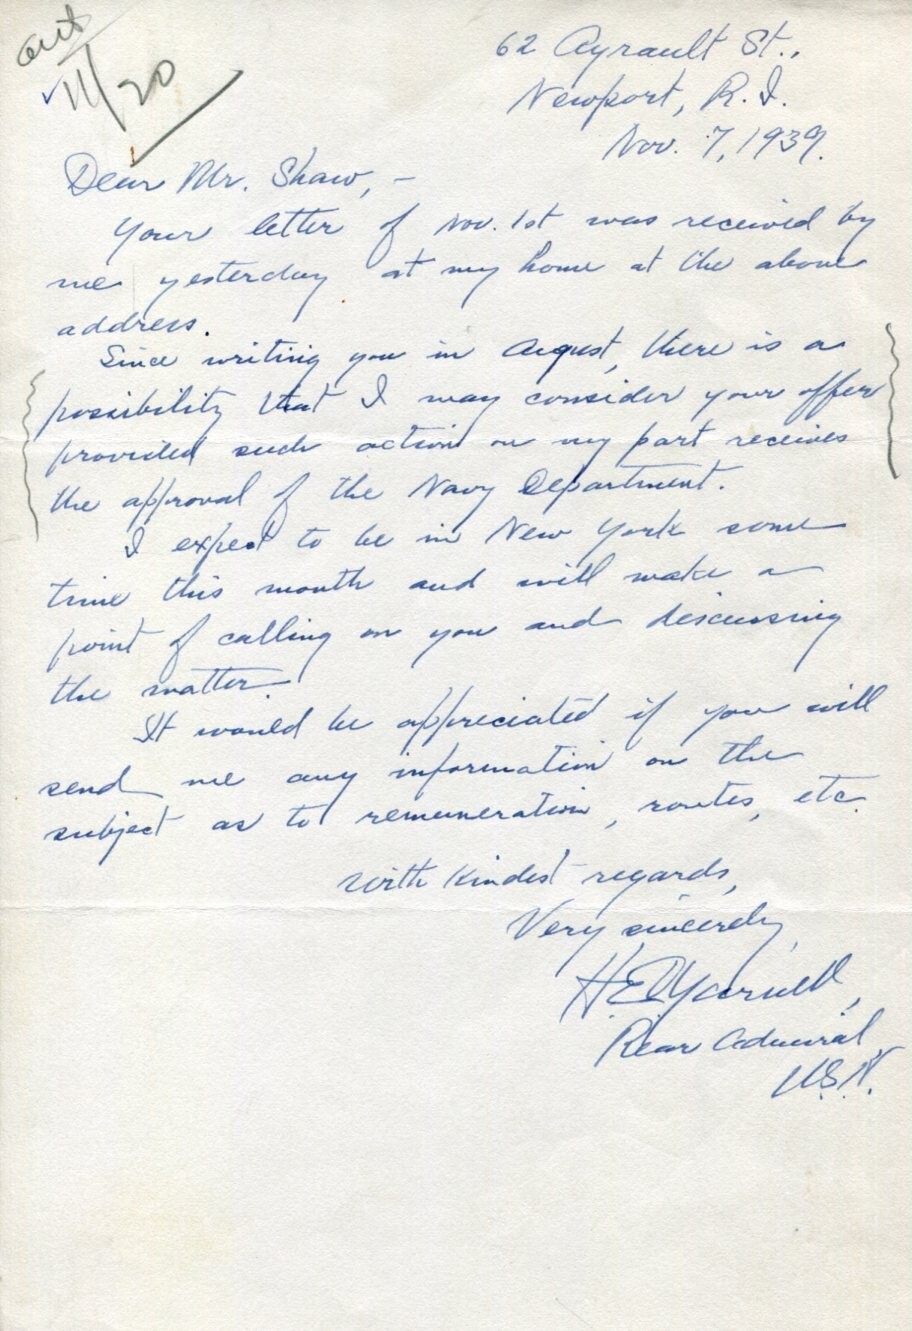 out
11/20
62 Ayrault St.,
Newport, R.I.
Nov. 7, 1939.
Dear Mr. Shaw, -
Your letter of Nov. 1st was received by
me yesterday at my home at the above
address.
Since writing you in August, there is a
possibility that I may consider your offer
provided such action on my part receives
the approval of the Navy Department.
I expect to be in New York some
time this month and will make a
point of calling on you and discussing
the matter.
It would be appreciated if you will
send me any information on the
subject as to remuneration, routes, etc.
With kindest regards,
Very sincerely,
H.E. Yarnell,
Rear Admiral,
U.S.N.